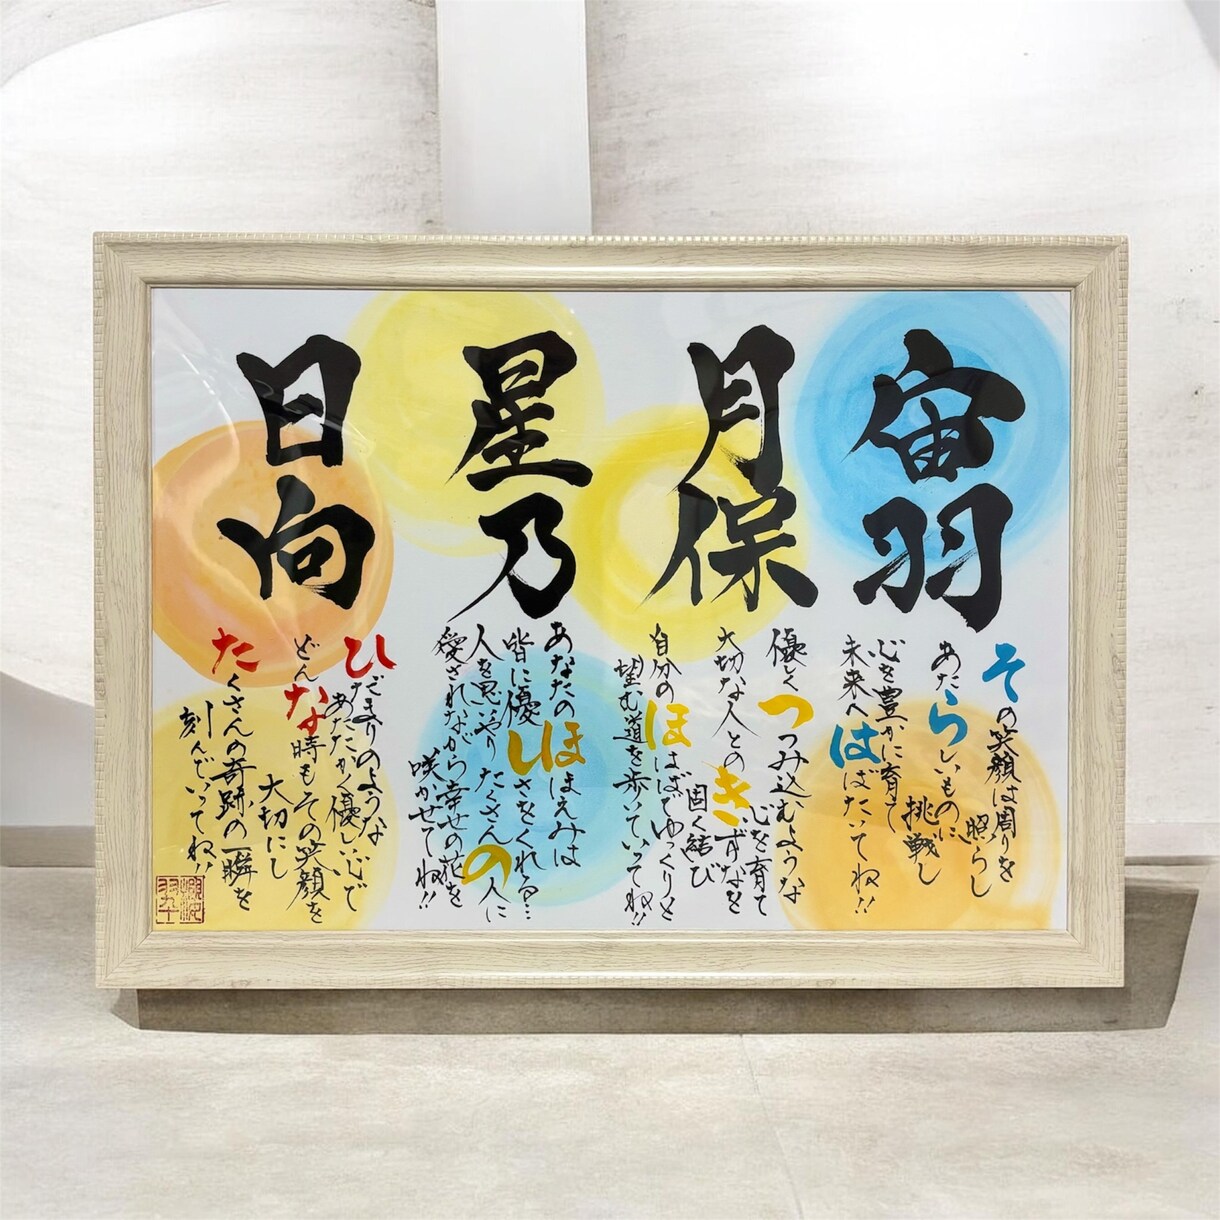 宙羽
その笑顔は周りを
照らし
あたらしいものに
挑戦し
心を豊かに育て
未来へ
はばたいてね!!
月保
優しく
つつみ込むような
心を育て
大切な人との
きずなを
固く結び
自分の
ほほばでゆっくりと
望む道を歩いていってね!!
星乃
あなたの
ほほえみは
皆に優しさをくれる…
人を思いやり
たくさんの人に
愛されながら幸せの花を
咲かせてね!!
日向
ひだまりのような
あたたかく優しい心で
どんな時もその笑顔を
大切にし
たくさんの奇跡の一瞬を
刻んでいってね!!